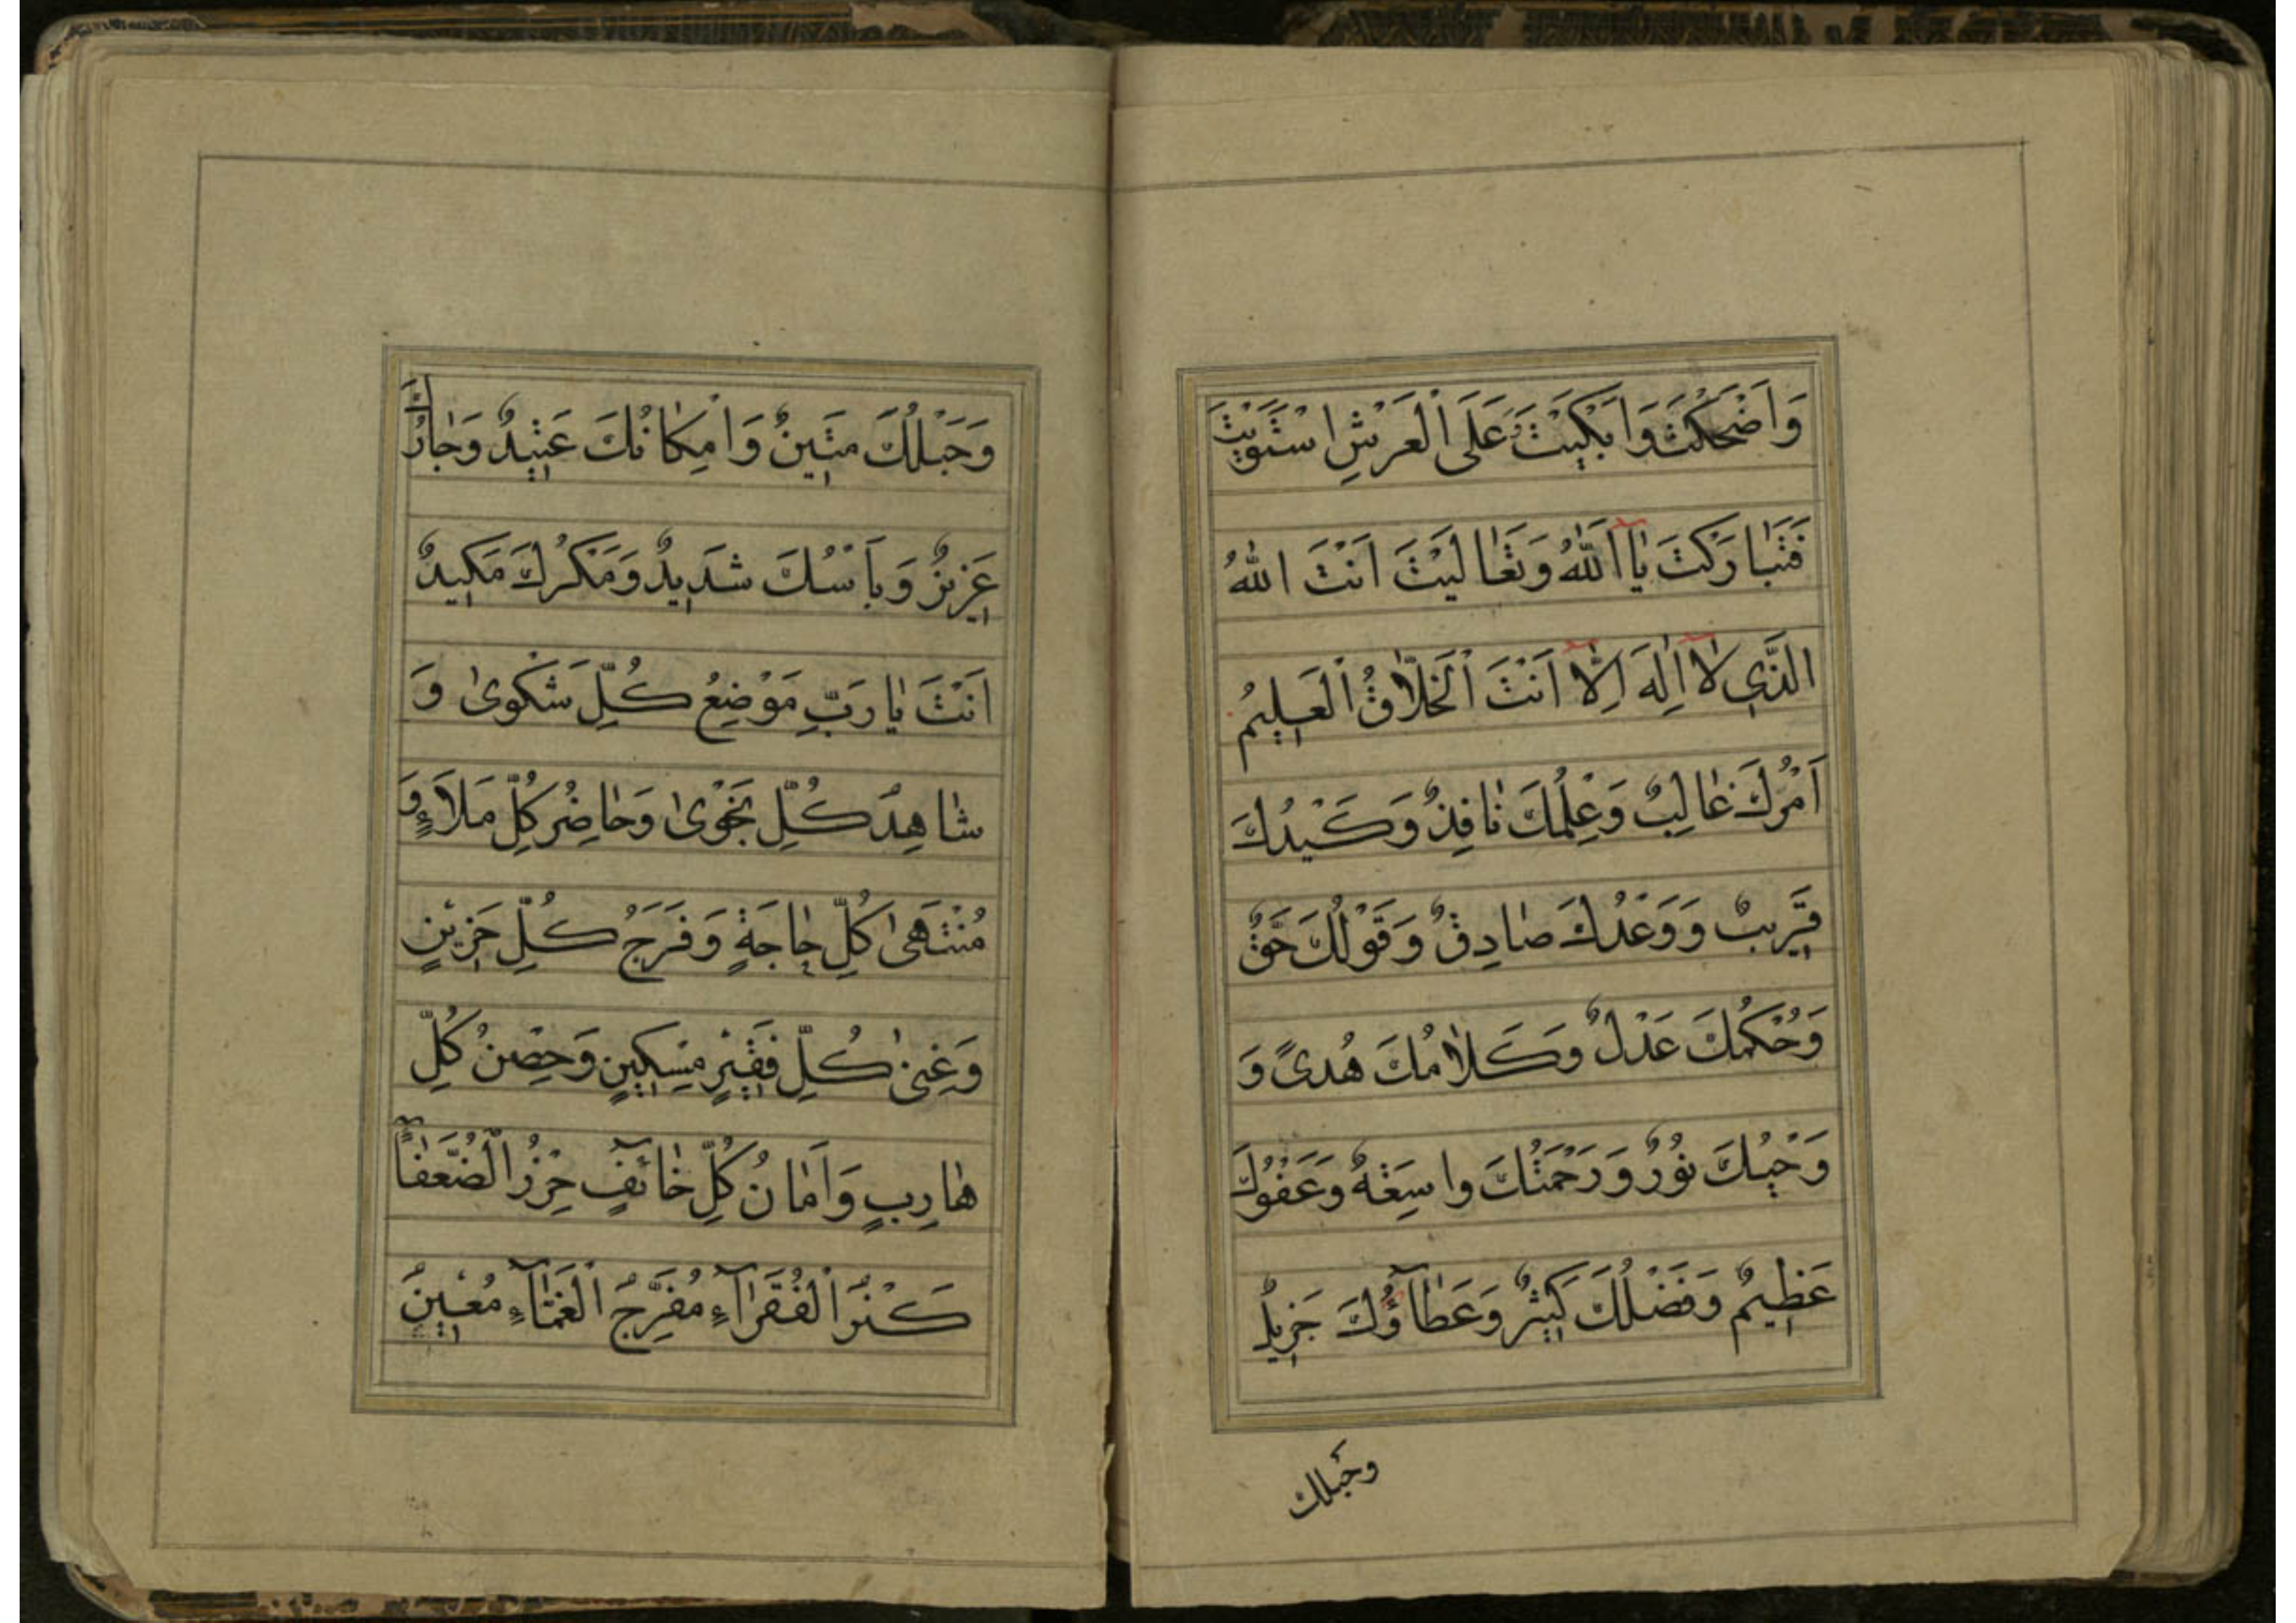 وَاَضْحَكْتَ وَاَبْكَيْتَ وَعَلَى الْعَرْشِ اسْتَوَيْتَ
فَتَبٰارَكْتَ يٰا اَللّٰهُ وَتَعٰالَيْتَ اَنْتَ اللّٰهُ
الَّذِي لٰا اِلٰهَ اِلّٰا اَنْتَ الْخَلّٰاقُ الْعَلِيمُ
اَمْرُكَ غٰالِبٌ وَعِلْمُكَ نٰافِذٌ وَكَيْدُكَ
قَرِيبٌ وَوَعْدُكَ صٰادِقٌ وَقَوْلُكَ حَقٌّ
وَحُكْمُكَ عَدْلٌ وَكَلٰامُكَ هُدىً وَ
وَحْيُكَ نُورٌ وَرَحْمَتُكَ وٰاسِعَةٌ وَعَفْوُكَ
عَظِيمٌ وَفَضْلُكَ كَثِيرٌ وَعَطٰاؤُكَ جَزِيلٌ
وحَبلك
وَحَبْلُكَ مَتِينٌ وَاِمْكٰانُكَ عَتِيدٌ وَجٰارُكَ
عَزِيزٌ وَبَأْسُكَ شَدِيدٌ وَمَكْرُكَ مَكِيدٌ
اَنْتَ يٰا رَبِّ مَوْضِعُ كُلِّ شَكْوىٰ وَ
شٰاهِدُ كُلِّ نَجْوىٰ وَحٰاضِرُ كُلِّ مَلَاءٍ وَ
مُنْتَهىٰ كُلِّ حٰاجَةٍ وَفَرَجُ كُلِّ حَزِينٍ
وَغِنىٰ كُلِّ فَقِيرٍ مِسْكِينٍ وَحِصْنُ كُلِّ
هٰارِبٍ وَاَمٰانُ كُلِّ خٰائِفٍ حِرْزُ الضُّعَفٰآءِ
كَنْزُ الْفُقَرٰآءِ مُفَرِّجُ الْغَمّٰآءِ مُعِينُ